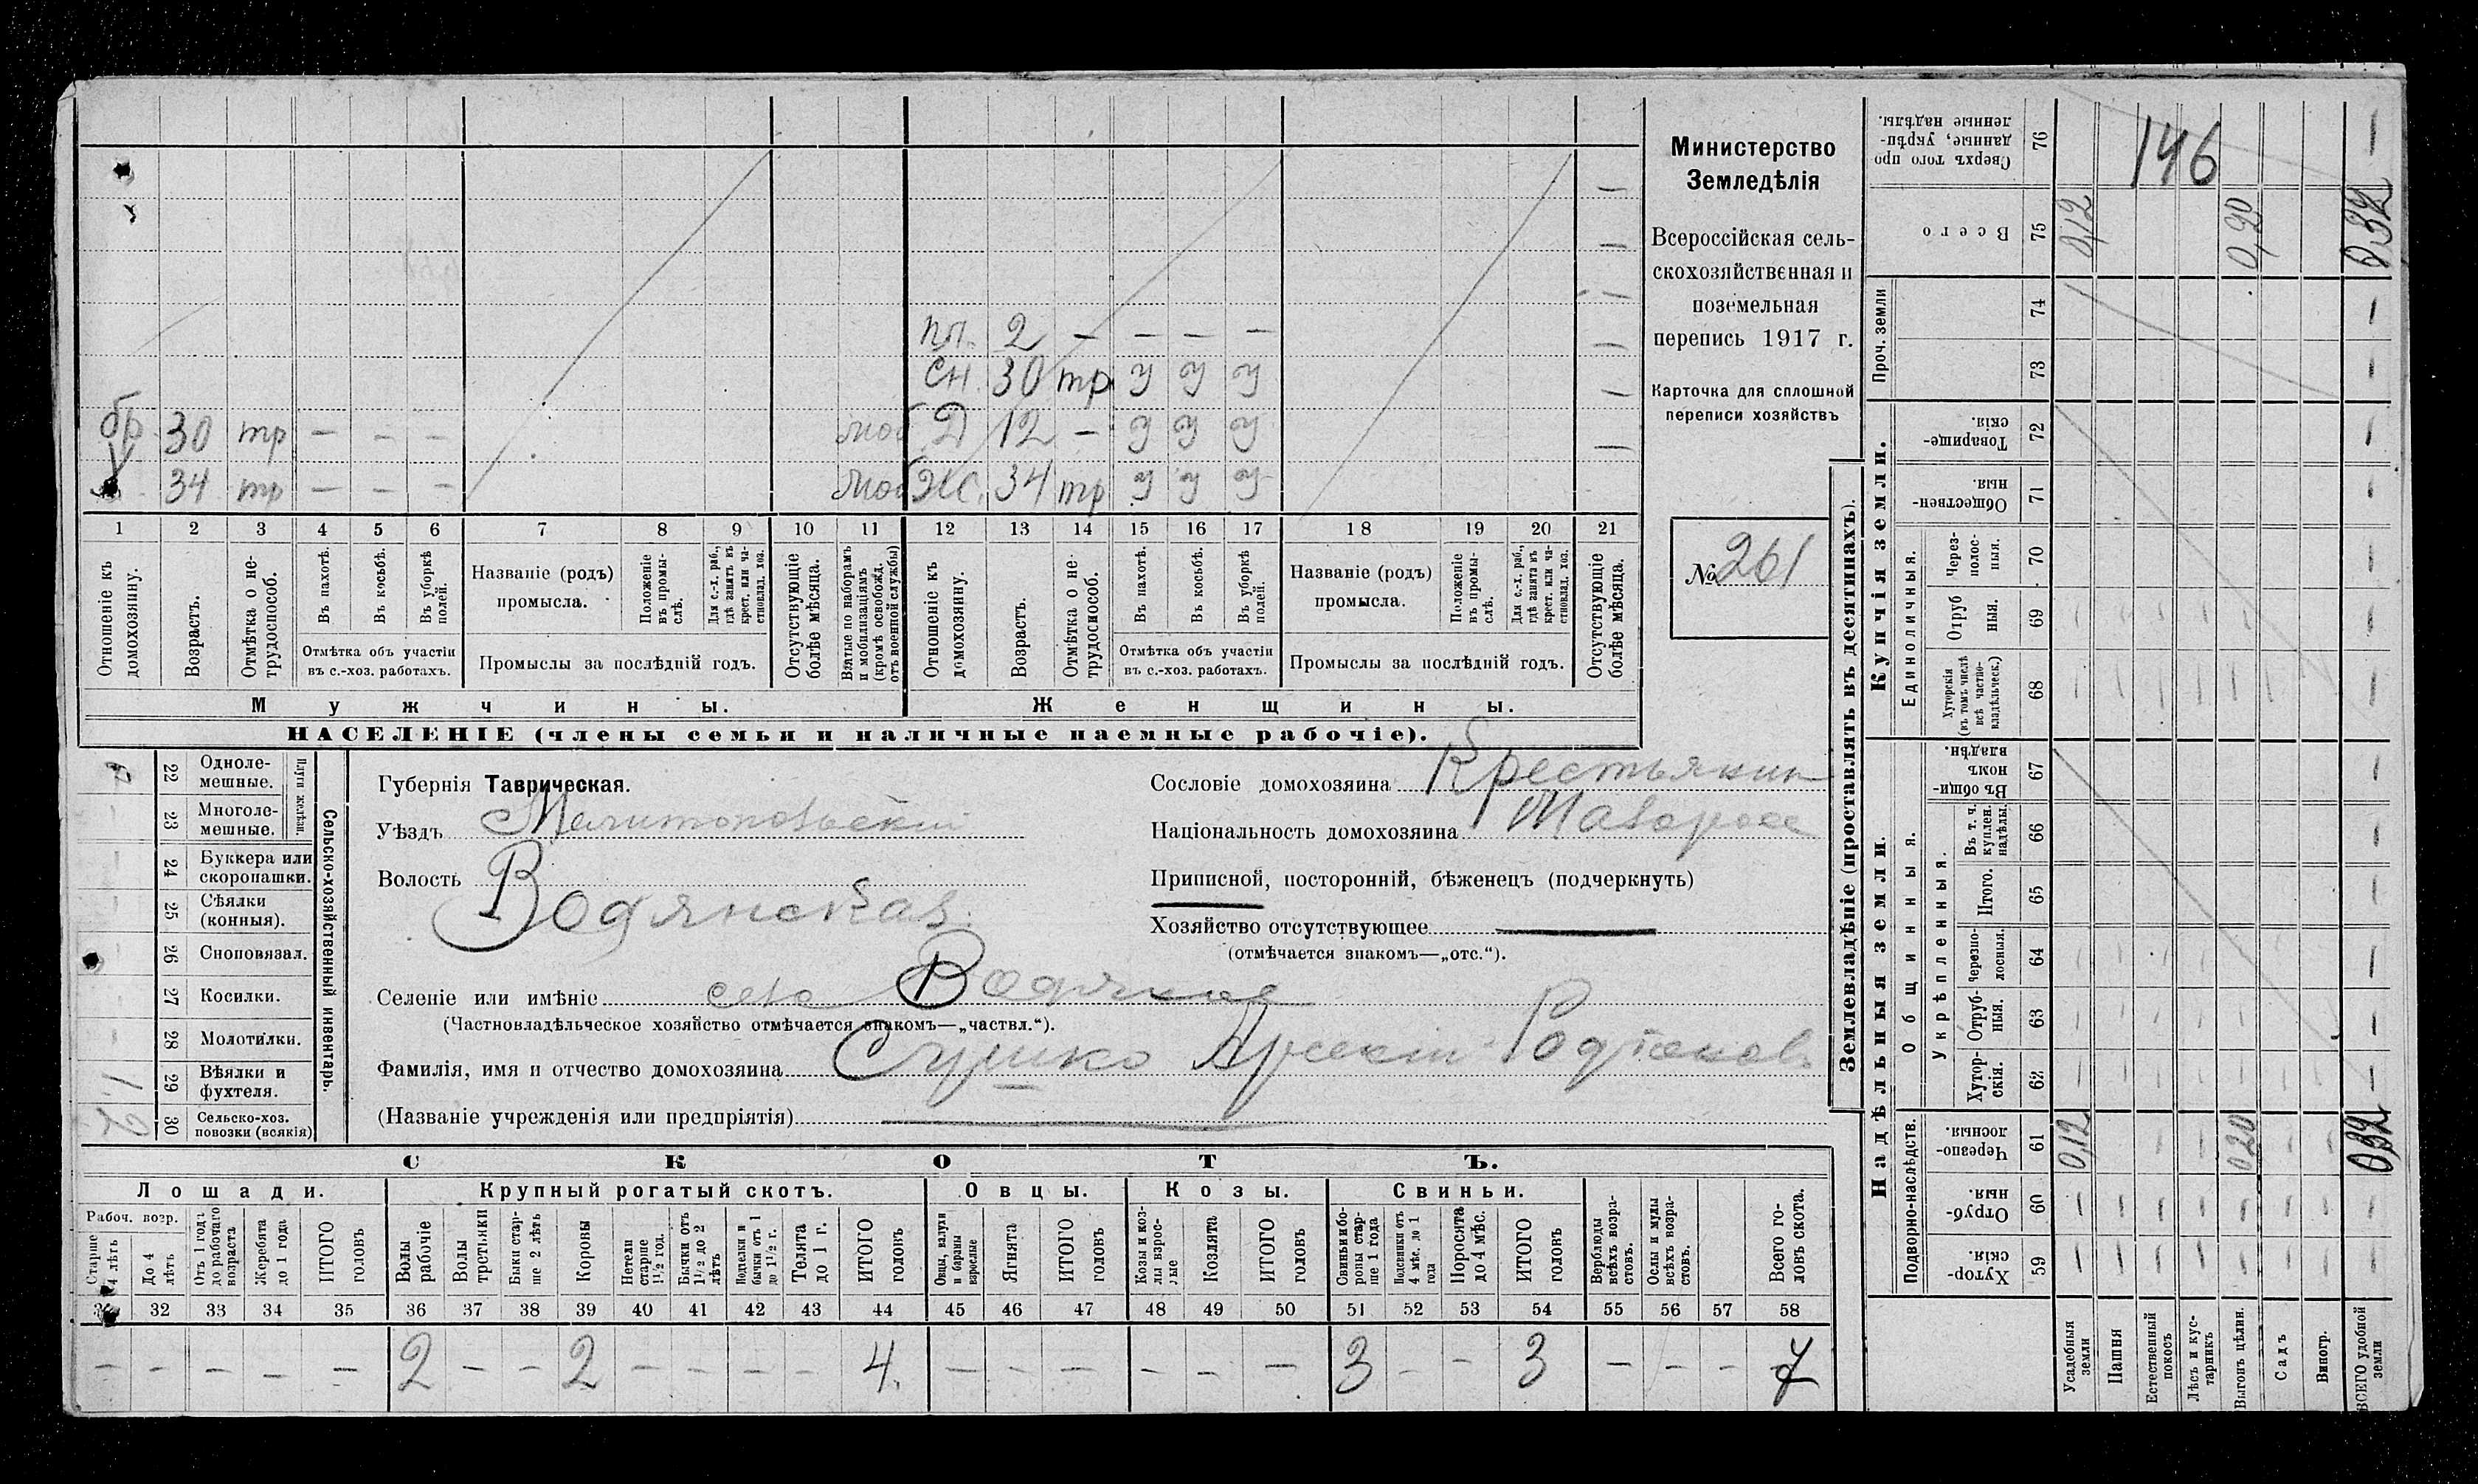 Министерство
Земледѣлія
Всероссійская сель-
скохозяйственная и
поземельная
перепись 1917 г.
Карточка для сплошной
переписи хозяйствъ
№ 261
пл. 2 — — — —
сн. 30 тр у у у
бр 30 тр — — — моб Д 12 — у у у
34 тр — — — моб Ж. 34 тр у у у
1 2 3 4 5 6 7 8 9 10 11 12 13 14 15 16 17 18 19 20 21
Отношеніе къ домохозяину.
Возрастъ.
Отмѣтка о не-трудоспособ.
Въ пахотѣ.
Въ косьбѣ.
Въ уборкѣ полей.
Отмѣтка объ участіи въ с.-хоз. работахъ.
Названіе (родъ) промысла.
Положеніе въ промы-слѣ.
Для с.-х. раб., гдѣ занятъ въ крест. или ча-стновлад. хоз.
Промыслы за послѣдній годъ.
Отсутствующіе болѣе мѣсяца.
Взятые по наборамъ и мобилизаціямъ (кромѣ освобожд. отъ военной службы)
Отношеніе къ домохозяину.
Возрастъ.
Отмѣтка о не-трудоспособ.
Въ пахотѣ.
Въ косьбѣ.
Въ уборкѣ полей.
Отмѣтка объ участіи въ с.-хоз. работахъ.
Названіе (родъ) промысла.
Положеніе въ промы-слѣ.
Для с.-х. раб., гдѣ занята въ крест. или ча-стновлад. хоз.
Промыслы за послѣдній годъ.
Отсутствующіе болѣе мѣсяца.
Мужчины. Женщины.
НАСЕЛЕНІЕ (члены семьи и наличные наемные рабочіе).
Сельско-хозяйственный инвентарь.
Плуги желѣзн.
22 Одноле-мешные.
23 Многоле-мешные.
24 Буккера или скоропашки.
25 Сѣялки (конныя).
26 Сноповязал.
27 Косилки.
28 Молотилки.
29 Вѣялки и фухтеля. 1
30 Сельско-хоз. повозки (всякія)
Губернія Таврическая.
Уѣздъ Мелитопольскій
Волость Водянская
Селеніе или имѣніе село Водяное
(Частновладѣльческое хозяйство отмѣчается знакомъ—„частвл.“).
Фамилія, имя и отчество домохозяина Сушко
(Названіе учрежденія или предпріятія)
Сословіе домохозяина Крестьянин
Національность домохозяина Малоросс
Приписной, посторонній, бѣженецъ (подчеркнуть)
Хозяйство отсутствующее
(отмѣчается знакомъ—„отс.“).
СКОТЪ.
Лошади. Крупный рогатый скотъ. Овцы. Козы. Свиньи.
Рабоч. возр.
Старше 4 лѣтъ
До 4 лѣтъ
Отъ 1 года до рабочаго возраста
Жеребята до 1 года
ИТОГО головъ
Волы рабочіе
Волы третьяки
Быки стар-ше 2 лѣтъ
Коровы
Нетели старше 1 1/2 год.
Бычки отъ 1 1/2 до 2 лѣтъ
бычки отъ 1 до 1 1/2 г.
Телята до 1 г.
ИТОГО головъ
Овцы, валухи и бараны взрослые
Ягнята
ИТОГО головъ
Козы и коз-лы взрос-лые
Козлята
ИТОГО головъ
Свиньи и бо-ровы стар-ше 1 года
Подсвинки отъ 4 мѣс. до 1 года
Поросята до 4 мѣс.
ИТОГО головъ
Верблюды всѣхъ возра-стовъ.
Ослы и мулы всѣхъ возра-стовъ.
Всего го-ловъ скота.
32 33 34 35 36 37 38 39 40 41 42 43 44 45 46 47 48 49 50 51 52 53 54 55 56 57 58
— — — — — 2 — — 2 — — — — 4 — — — — — — 3 — — 3 — — — 7
Землевладѣніе (проставлять въ десятинахъ).
146
76 Сверхъ того про данные, укрѣп-ленные надѣлы.
75 Всего 0,12 0,20 0,32
Проч. земли
74
73
Купчія земли.
72 Товарище-скія.
71 Обществен-ныя.
Единоличныя.
70 Через-полос-ныя.
69 Отруб ныя.
68 Хуторскія (въ томъ числѣ всѣ частно-владѣльческ.)
Надѣльныя земли.
67 Въ общи-номъ владѣн.
Общинныя.
Укрѣпленныя.
66 Въ т. ч. куплен. надѣлы.
65 Итого.
64 Черезпо-лосныя.
63 Отруб-ныя.
62 Хутор-скія.
Подворно-наслѣдств.
61 Черезпо-лосныя. 0,12 0,20 0,32
60 Отруб-ныя.
59 Хутор-скія.
Усадебныя земли
Пашня
Естественный покосъ
Лѣсъ и кус-тарникъ
Выгонъ цѣлин.
Садъ
Виногр.
ВСЕГО удобной земли